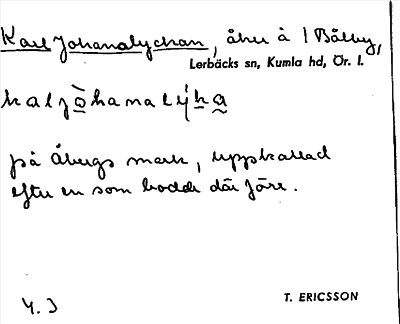 Karl Johanalyckan, åker å 1 Bålby,
Lerbäcks sn, Kumla hd, Ör. l.
kaljòhanalýka
på Åbergs mark, uppkallad
efter en som bodde där förr.
4. 3
T. ERICSSON